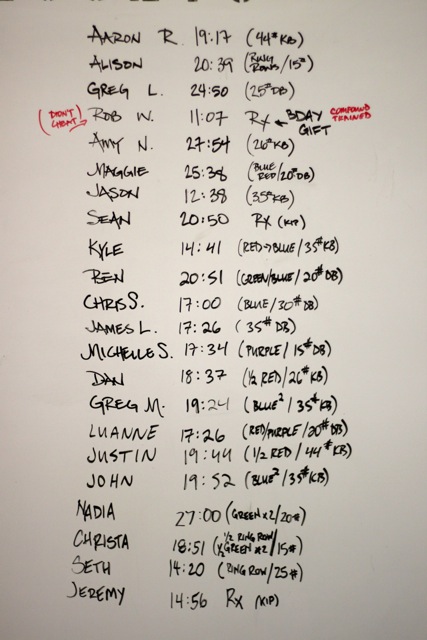 AARON R. 19:17 (44# KB)
ALISON 20:39 (RING ROWS/15#)
GREG L. 24:50 (25# DB)
(DIDN'T CHEAT) ROB W. 11:07 RX ← BDAY GIFT COMPOUND TRAINED
AMY N. 27:54 (26# KB)
MAGGIE 25:38 (BLUE RED/20# DB)
JASON 12:38 (35# KB)
SEAN 20:50 RX (KIP)
KYLE 14:41 (RED→BLUE/35# KB)
BEN 20:51 (GREEN/BLUE/20# DB)
CHRIS S. 17:00 (BLUE/30# DB)
JAMES L. 17:26 (35# DB)
MICHELLE S. 17:34 (PURPLE/15# DB)
DAN 18:37 (1/2 RED/26# KB)
GREG M. 19:24 (BLUE²/35# KB)
LUANNE 17:26 (RED/PURPLE/20# DB)
JUSTIN 19:44 (1/2 RED/44# KB)
JOHN 19:52 (BLUE²/35# KB)
NADIA 27:00 (GREEN x2/20#)
CHRISTA 18:51 (1/2 RING ROW/ 1/2 GREEN x2/15#)
SETH 14:20 (RING ROW/25#)
JEREMY 14:56 RX (KIP)